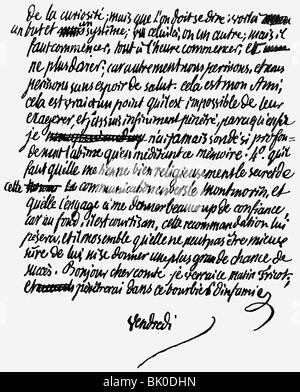 De la curiosité; mais que l'on doit se dire: voilà
un but et un système; ou celui-ci, ou un autre; mais il
faut commencer, tout à l'heure commencer, et
ne plus dévier; car autrement nous périssons, et nous
périssons sans espoir de salut. cela est mon ami,
cela est vrai à un point qu'il est impossible de leur
exagérer, et j'en suis infiniment pénétré, parce qu'après
je n'ai jamais sondé si profon-
dement l'abîme qu'en méditant ce mémoire. 4o. qu'il
faut qu'elle me tienne bien religieusement le secret de
cette communication envers le montmorin, et
qu'elle l'engage à me donner beaucoup de confiance
car au fond, il est courtisan, cette recommandation lui
pèsera, et il me semble qu'elle ne peut pas être mieux
sûre de lui ni se donner une plus grande chance de
succès. Bonjour cher comte je verrai ce matin
et pénétrerai dans ce bourbier d'infamie
vendredi
alamy
BK0DHN
www.alamy.com